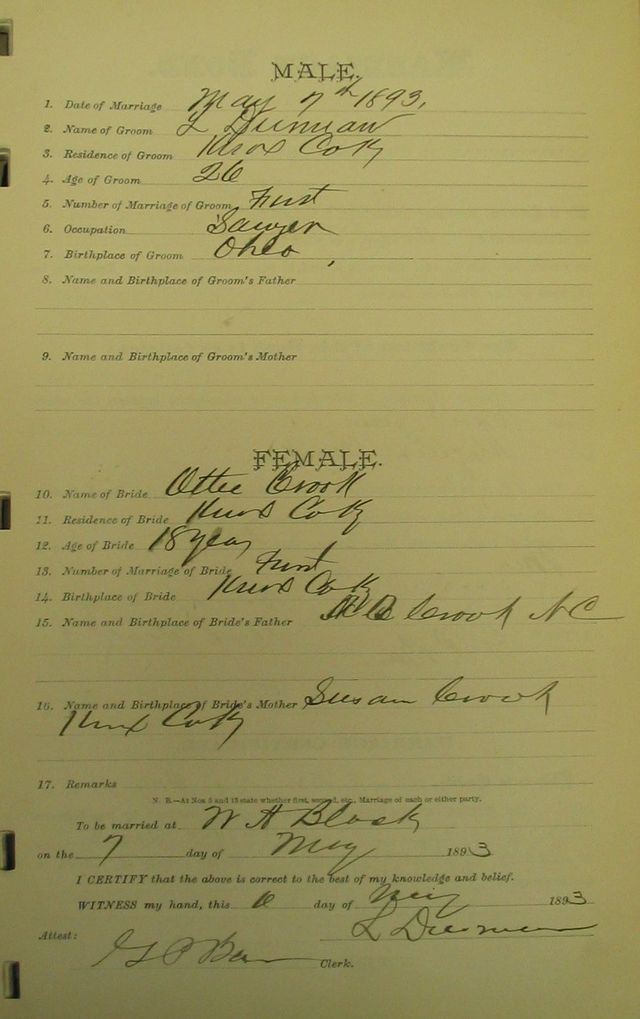 MALE.
1. Date of Marriage May 7th 1893,
2. Name of Groom L
3. Residence of Groom Knox Co Ky
4. Age of Groom 26
5. Number of Marriage of Groom First
6. Occupation Sawyer
7. Birthplace of Groom Ohio,
8. Name and Birthplace of Groom's Father
9. Name and Birthplace of Groom's Mother
FEMALE.
10. Name of Bride Ottie Crook
11. Residence of Bride Knox Co Ky
12. Age of Bride 18 year
13. Number of Marriage of Bride First
14. Birthplace of Bride Knox Co Ky
15. Name and Birthplace of Bride's Father Crook N C
16. Name and Birthplace of Bride's Mother Susan Crook
Knox Co Ky
17. Remarks
N. B.—At Nos 5 and 13 state whether first, second, etc., Marriage of each or either party.
To be married at W H Black
on the 7 day of May 1893
I CERTIFY that the above is correct to the best of my knowledge and belief.
WITNESS my hand, this 6 day of May 1893
L
Attest:
Clerk.